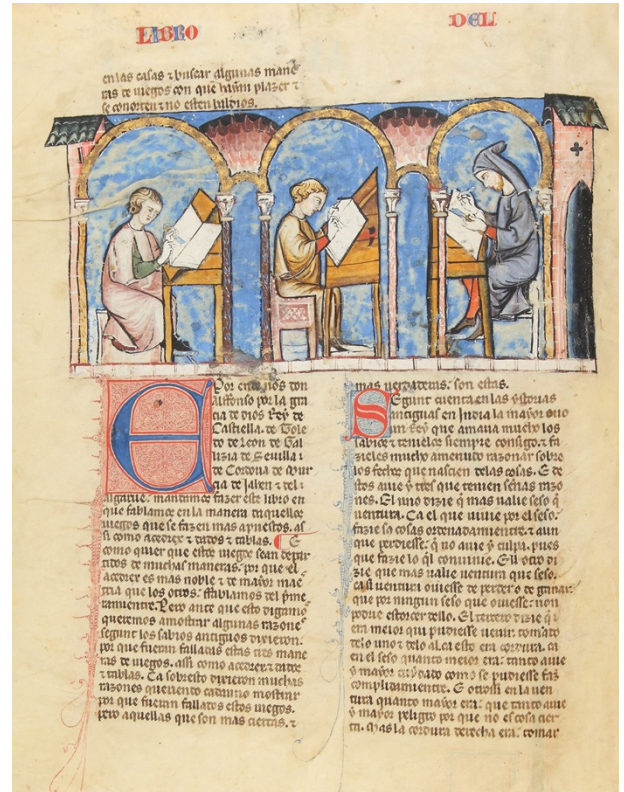 LIBRO
DEL
en las casas ⁊ buscar algunas mane
ras de iuegos con que hayan plazer ⁊
se conorten ⁊ no esten baldios.
E Por ende nos don
alffonso por la gra
cia de dios Rey de
Castiella. de Tole
do de leon de Gal
lizia de Seuilla ⁊
de Cordoua de Mur
çia de Jahen ⁊ del
algarue. mandamos fazer este libro en
que fablamos en la manera daquellos
iuegos que se fazen mas apuestos. as
si como acedrex ⁊ dados ⁊ tablas. E
como quier que estos iuegos sean depar
tidos de muchas maneras. por que el
acedrex es mas noble ⁊ de mayor maes
tria que los otros. ffablamos del prime
ramientre. Pero ante que esto digamos
queremos amostrar algunas razones
segunt los sabios antiguos dixieron.
por que fueran falladas estas tres mane
ras de iuegos. assi como acedrex ⁊ dados
⁊ tablas. Ca sobresto dixieron muchas
razones queriendo cadauno mostrar
por que fueran fallados estos iuegos.
pero aquellas que son mas ciertas. ⁊
mas uerdaderas. son estas.
Segunt cuenta en las ystorias
antiguas en India la mayor ouo
un Rey que amaua mucho los
sabios ⁊ tenielos siempre consigo. ⁊ fa
zieles mucho amenudo razonar sobre
los fechos que nascien delas cosas. E de
stos auie y tres que tenien sennas razo
nes. El uno dizie que mas ualie seso que
uentura. Ca el que uiuie por el seso.
fazie sus cosas ordenadamientre. ⁊ aun
que perdiesse. que no auie y culpa. pues
que fazie lo quel conuinie. El otro di
zie que mas ualie uentura que seso.
ca si uentura ouiesse de perder o de ganar.
que por ningun seso que ouiesse. non
podrie estorcer dello. El tercero dizie que
era meior qui pudiesse ueuir tomando
delo uno ⁊ delo al. ca esto era cordura. ca
en el seso quanto meior era. tanto auie
y mayor cuydado como se pudiesse faz
complidamientre. E otrossi en la uen
tura quanto mayor era. que tanto auie
y mayor peligro por que no es cosa cier
ta. Mas la cordura derecha era. tomar